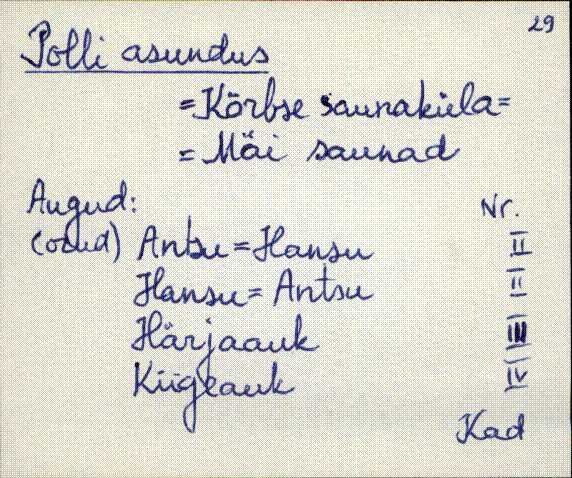 29
Polli asundus
=Kõrbse saunaküla=
= Mäi saunad
Augud: Nr.
(odud) Antsu=Hansu II
Hansu=Antsu II
Härjaauk III
Kiigeauk IV
Kad